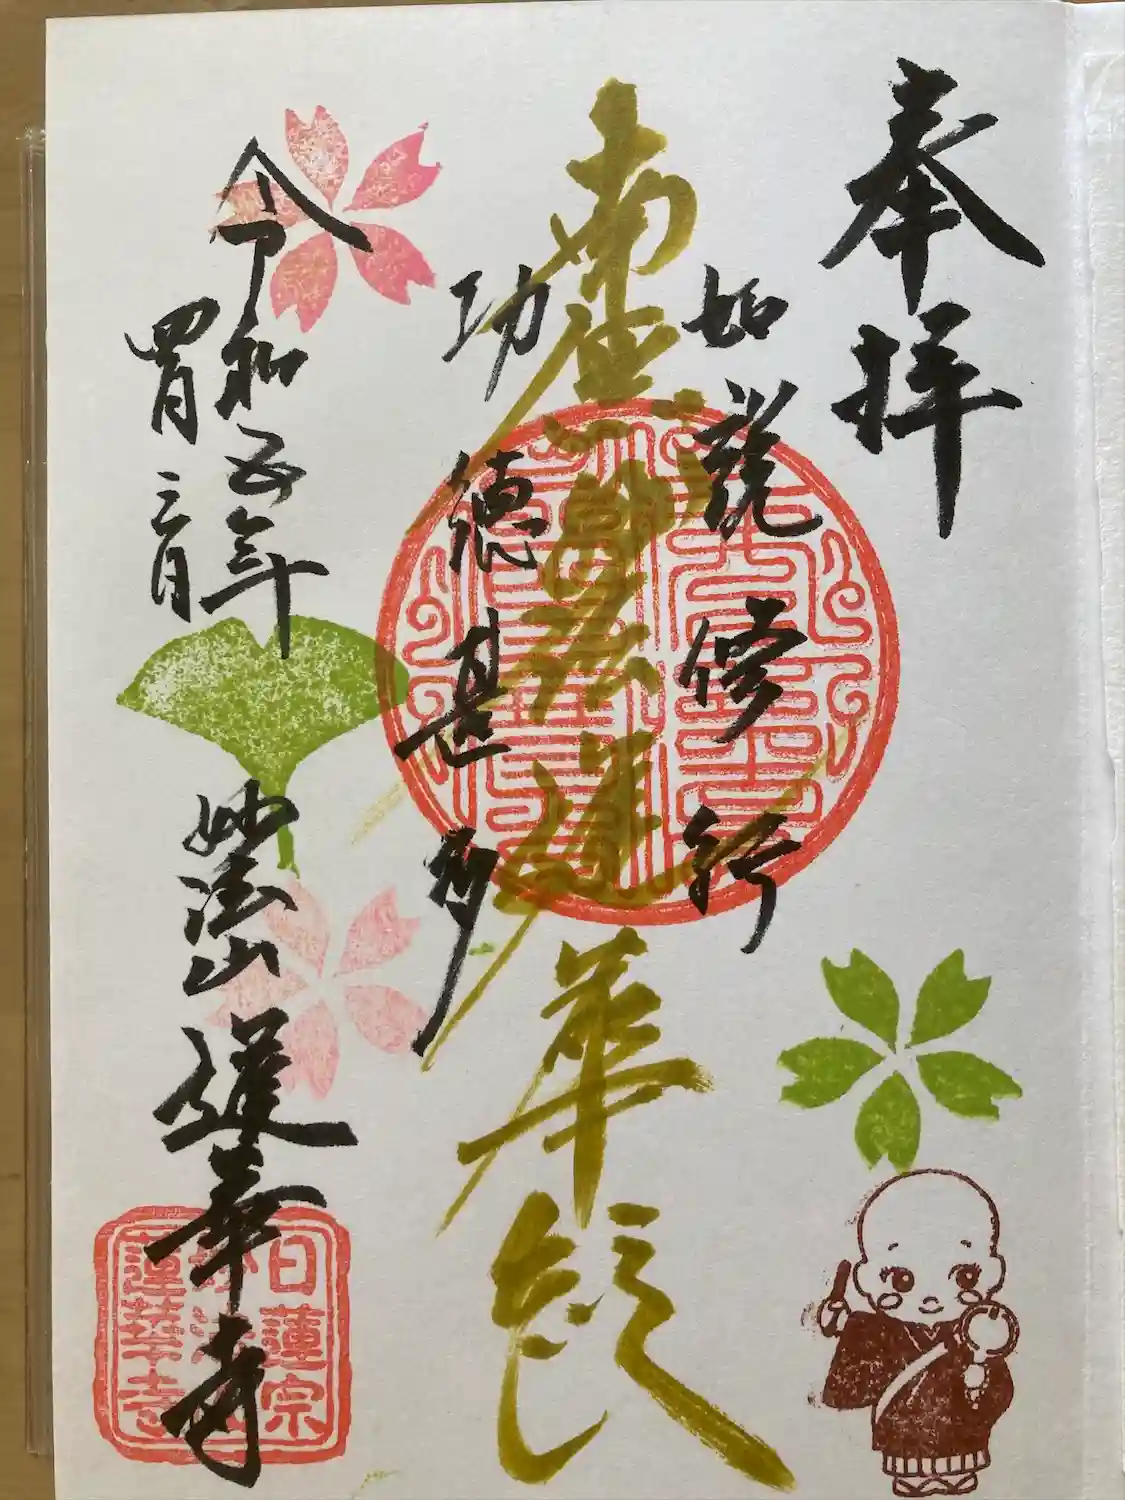 奉拝
如説修行
南無妙法蓮華経
功徳甚多
令和五年
四月
妙法山 蓮華寺
日蓮宗
妙法山
蓮華寺